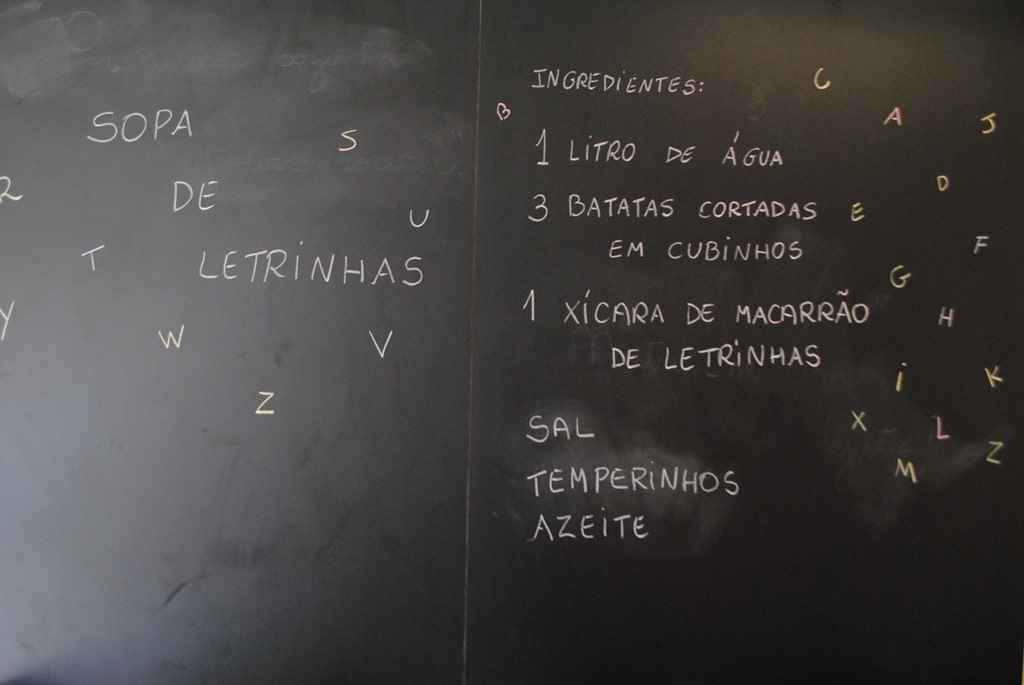 SOPA
DE
LETRINHAS
S
U
R
T
Y
W
V
Z
INGREDIENTES:
1 LITRO DE ÁGUA
3 BATATAS CORTADAS
EM CUBINHOS
1 XÍCARA DE MACARRÃO
DE LETRINHAS
SAL
TEMPERINHOS
AZEITE
B
C
A
J
D
E
F
G
H
i
K
X
L
Z
M